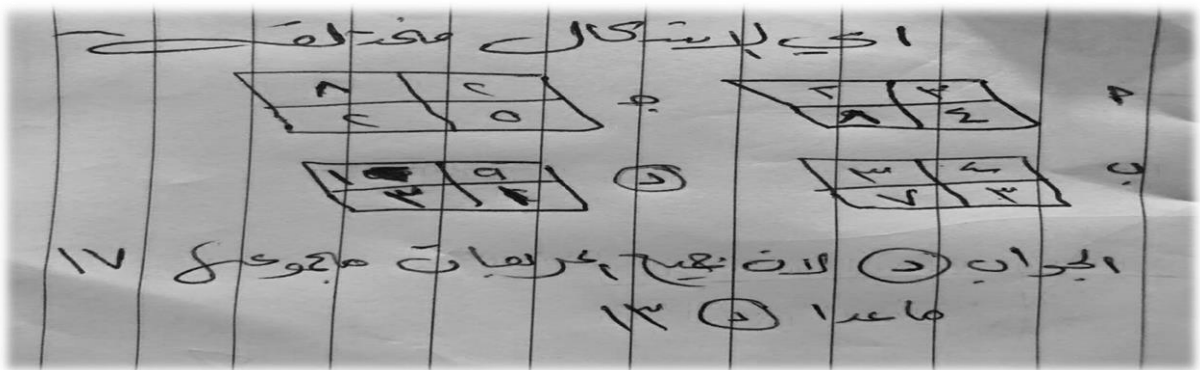 اي الاشكال مختلف
أ ٢ ٣ ج ٨ ٢
٨ ٤ ٢ ٥
ب ٣ ٤ د ١ ٩
٧ ٣ ٣
الجواب د لان جميع المربعات مجموعها ١٧
ماعدا د ١٣